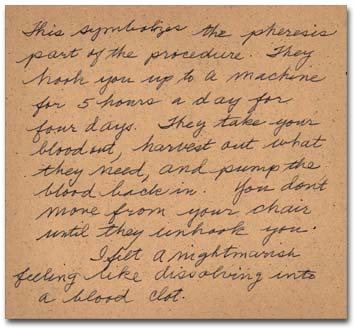 This symbolizes the pheresis
part of the procedure. They
hook you up to a machine
for 5 hours a day for
four days. They take your
blood out, harvest out what
they need, and pump the
blood back in. You don't
move from your chair
until they unhook you.
I felt a nightmarish
feeling like dissolving into
a blood clot.